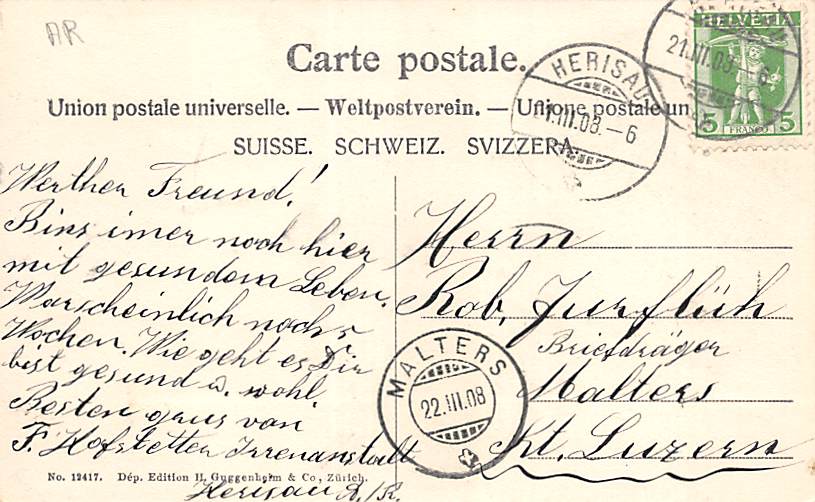 AR
Carte postale.
Union postale universelle. — Weltpostverein. — Unione postale un
SUISSE. SCHWEIZ. SVIZZERA.
HELVETIA
5 FRANCO 5
21.III.08.-6
HERISAU
21.III.08.-6
Werther Freund!
Bins imer noch hier
mit gesundem Leben.
Warscheinlich noch 5
Wochen. Wie geht es Dir
bist gesund u. wohl.
Besten grus von
F. Hofstetter Irrenanstalt
Herisau A/R.
Herrn
Rob. Zurflüh
Briefträger
Malters
Kt. Luzern
MALTERS
22.III.08
No. 12417. Dép. Edition H. Guggenheim & Co., Zürich.